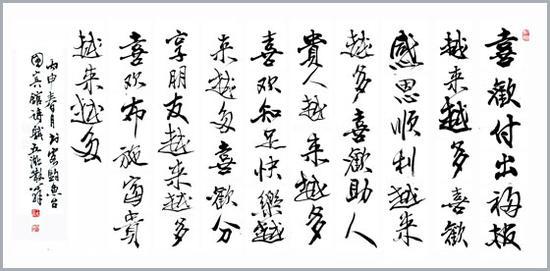 喜歡付出福报
越来越多喜歡
感恩順利越来
越多喜歡助人
貴人越来越多
喜欢知足快樂越
来越多喜歡分
享朋友越来越多
喜欢布施富貴
越来越多
丙申春月於
國宾館